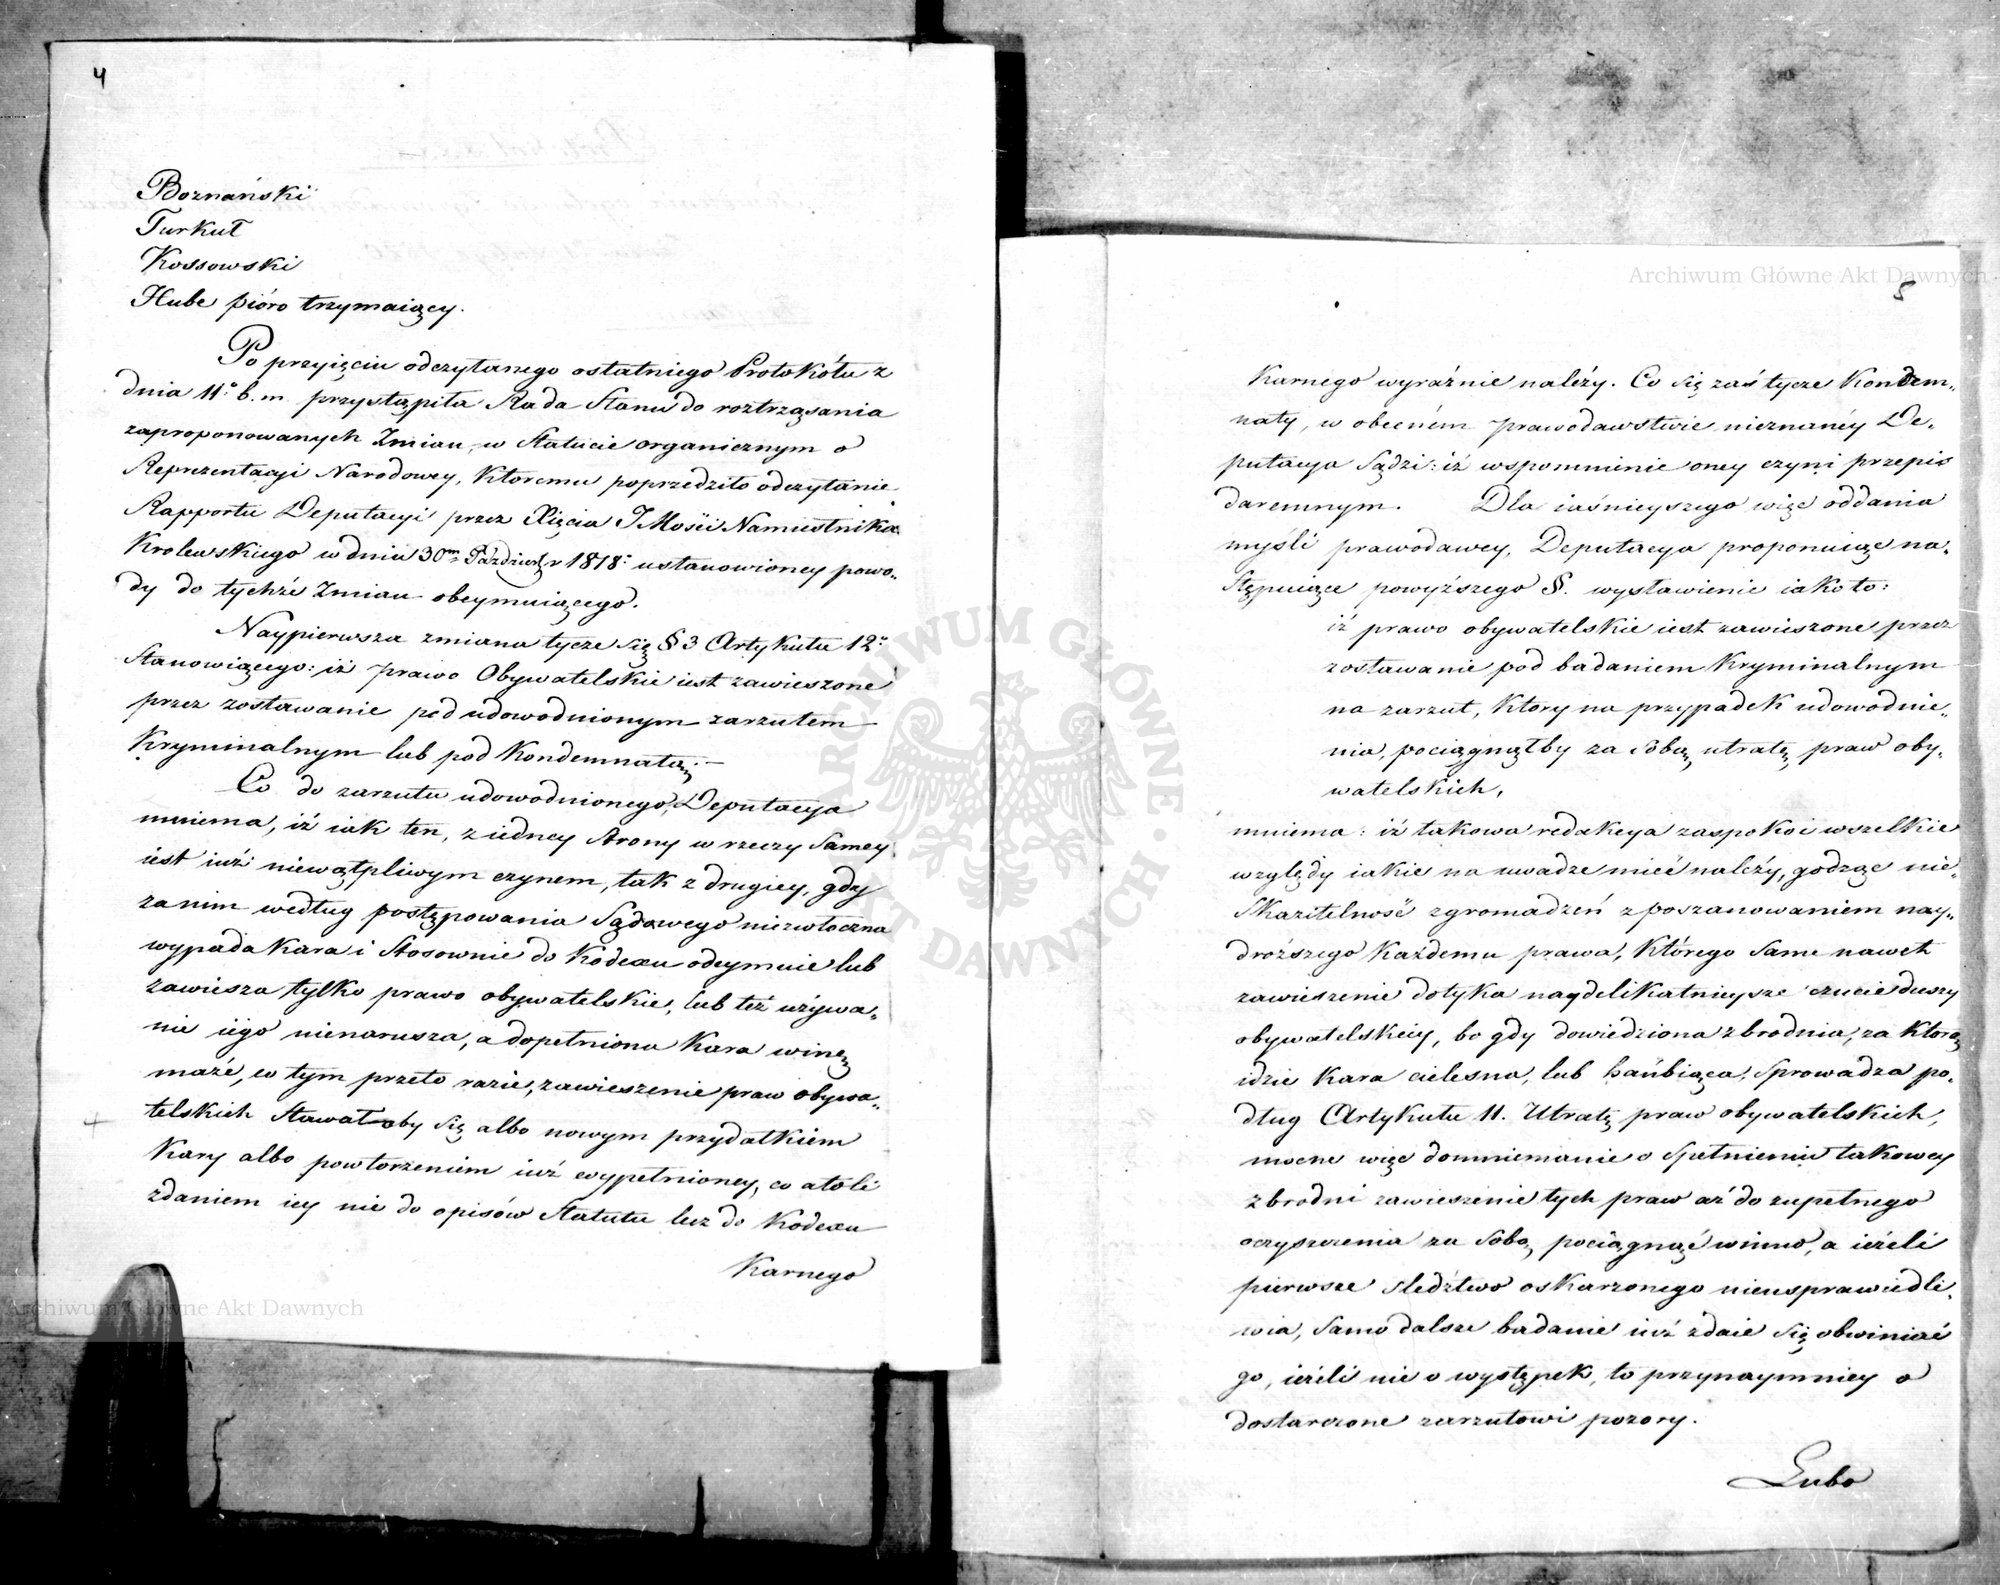 4
Boznański
Turkuł
Kossowski
Hube pióro trzymaiący.
Po przyięciu odczytanego ostatniego Protokółu z
dnia 11º b. m. przystąpiła Rada Stanu do roztrząsania
zaproponowanych Zmian, w Statucie organicznym o
Reprezentacyi Narodowey, Ktoremu poprzedziło odczytanie
Rapportu Deputacyi przez Xięcia JMości Namiestnika
Krolewskiego w dniu 30m Październ r 1818: ustanowioney powo„
dy do tychże Zmian obeymuiącego.
Naypierwsza zmiana tycze się § 3 Artykułu 12º
Stanowiącego: iż prawo Obywatelskie iest zawieszone
przez zostawanie pod udowodnionym zarzutem
Kryminalnym lub pod Kondemnatą. —
Co do zarzutu udowodnionego, Deputacya
mniema, iż iak ten, z iedney strony w rzeczy Samey
iest iuż niewątpliwym czynem, tak z drugiey, gdy
za nim według postępowania Sądowego niezwłoczna
wypada Kara i Stosownie do Kodexu odeymuie lub
zawiesza tylko prawo obywatelskie, lub też używa„
nie iego nienarusza, a dopełniona Kara winę
maże, w tym przeto razie, zawieszenie praw obywa„
telskich Stawałoby się albo nowym przydatkiem
Kary albo powtorzeniem iuż wypełnioney, co atoli
zdaniem iey nie do opisów Statutu lecz do Kodexu
Karnego
Archiwum Główne Akt Dawnych
Archiwum Główne Akt Dawnych
5
Karnego wyraźnie należy. Co się zaś tycze Kondem„
naty, w obecném prawodawstwie nieznanéy De„
putacya Sądzi: iż wspomnienie oney czyni przepis
daremnym. Dla iaśnieyszego więc oddania
myśli prawodawcy, Deputacya proponuiąc na„
stępuiące powyższego §. wystawienie iako to:
iż prawo obywatelskie iest zawieszone przez
zostawanie pod badaniem Kryminalnym
na zarzut, Ktory na przypadek udowodnie„
nia, pociągnąłby za Sobą utratę praw oby„
watelskich,
mniema: iż takowa redakcya zaspokoi wszelkie
względy iakie na uwadze mieć należy, godząc nie„
Skazitelność zgromadzeń z poszanowaniem nay„
droższego Każdemu prawa, Którego Same nawet
zawieszenie dotyka naydelikatnieysze czucie duszy
obywatelskiey, bo gdy dowiedziona zbrodnia, za Ktorą
idzie Kara cielesna, lub hańbiąca, Sprowadza po„
dług Artykułu 11. Utratę praw obywatelskich,
mocne więc domniemanie o Spełnieniu takowey
zbrodni zawieszenie tych praw aż do zupełnego
oczyszczenia za Sobą pociągnąć winno, a ieżeli
pierwsze śledztwo oskarzonego nieusprawiedli„
wia, Samo dalsze badanie iuż zdaie Się obwiniać
go, ieżeli nie o występek, to przynaymniey o
dostarczone zarzutowi pozory.
Lubo
ARCHIWUM GŁÓWNE AKT DAWNYCH